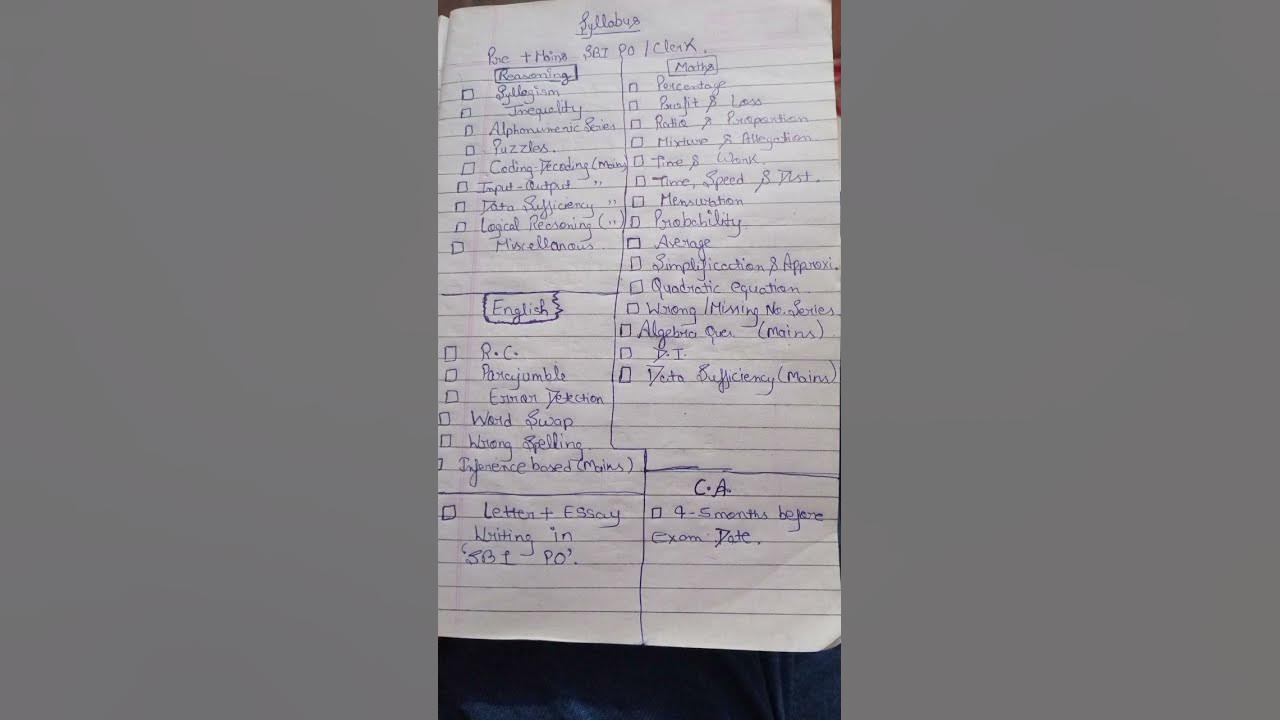 Syllabus
Pre + Mains SBI PO / Clerk.
Reasoning
Syllogism
Inequality
Alphanumeric Series
Puzzles.
Coding-Decoding (Mains)
Input-Output "
Data Sufficiency "
Logical Reasoning (")
Miscellanous
Maths
Percentage
Profit & Loss
Ratio & Proportion
Mixture & Allegation
Time & Work.
Time, Speed & Dist.
Mensuration
Probability
Average
Simplification & Approxi.
Quadratic equation
Wrong / Missing No. Series
Algebra Ques (Mains)
D.I.
Data Sufficiency (Mains)
English
R.C.
Parajumble
Error Detection
Word Swap
Wrong Spelling
Inference based (Mains)
Letter + Essay
Writing in
'SBI PO'.
C.A.
4-5 months before
Exam Date.